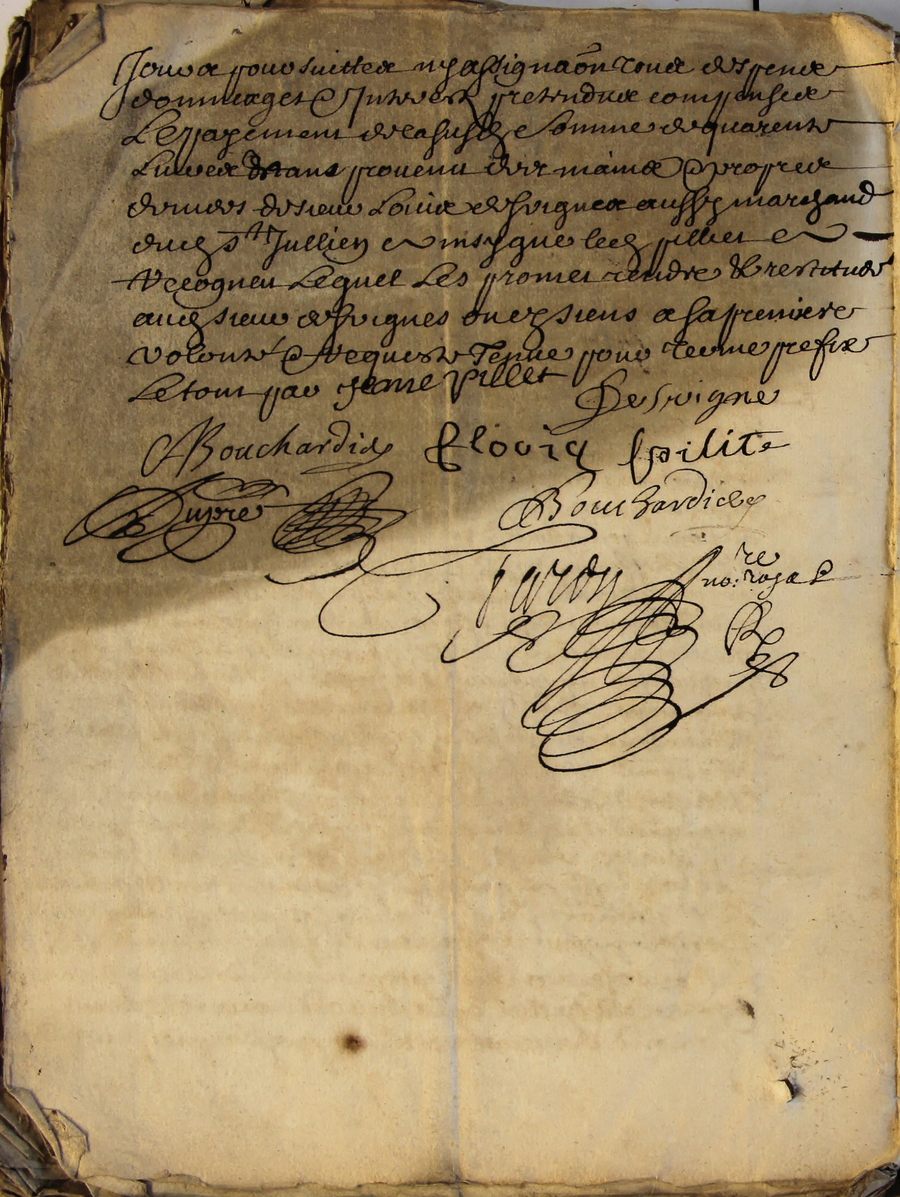 pour suitte ny assignaôn tous despens
dommages & Interestz pretendus compensés
Le payement de la susd somme de quarente
Livres estans provenu des mains & propres
deniers de sieur Louis desvignes aussy marchand
dud St Jullien comsygne led pillet
Recogneu Lequel Les promet rendre & restituer
aud sieur desvignes ou es siens a sa premiere
volonté & requeste Tenue pour terme prefix
Le tout par led pillet
Desvigne
Bouchardie Clovig pilite
Dupre
Bouchardie
no:re royal